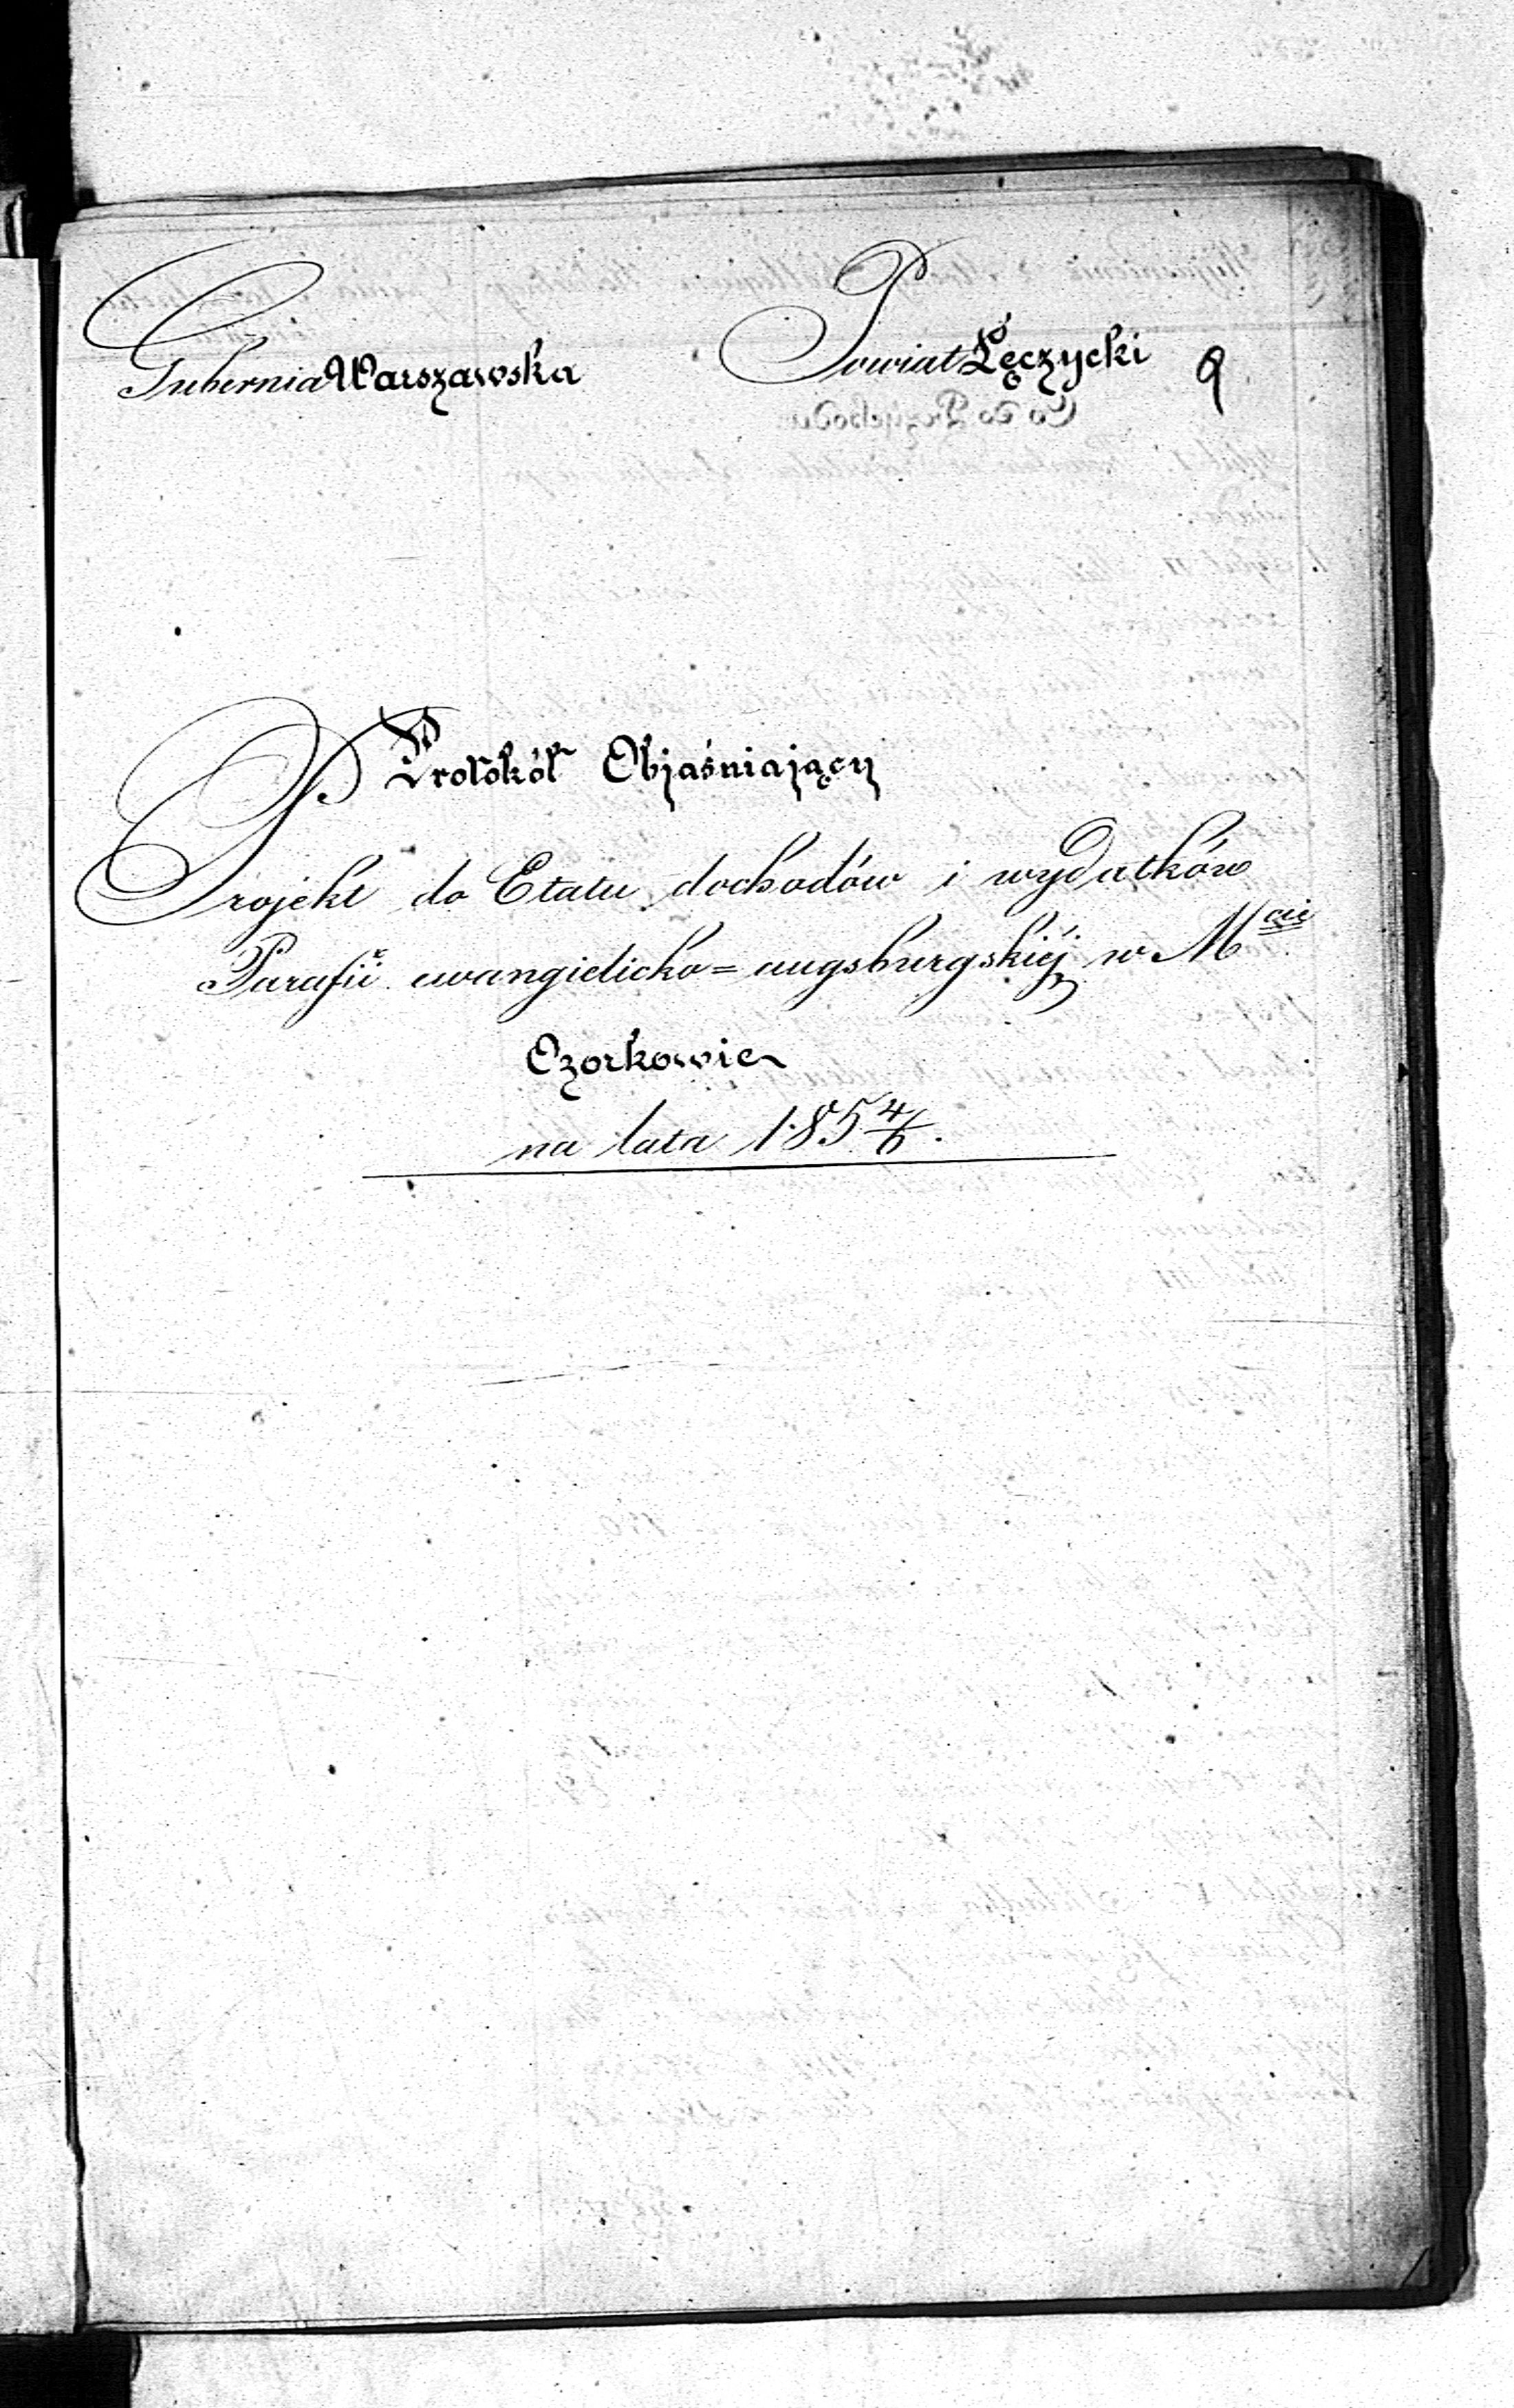 Gubernia Warszawska Powiat Łęczycki 9
Protokół Objaśniający
Projekt do Etatu dochodów i wydatków
Parafii ewangielicko=augsburgskiéj w Mcie
Ozorkowie
na lata 185 4/6.